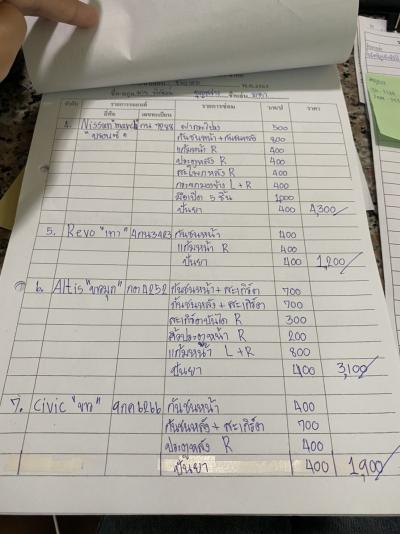 ลำดับ รายการรถยนต์ รายการซ่อม ราคา
ยี่ห้อ เลขทะเบียน
4. Nissan march 7288 ฝากระโปรง 500
"บรอนซ์" กันชนหน้า + กันชนหลัง 800
แก้มหน้า R 400
ประตูหลัง R 400
สะโพกหลัง R 400
กระจกมองข้าง L + R 400
มือเปิด 5 ชิ้น 1,000
ปั่นยา 400 4,300
5. Revo "เทา" กันชนหน้า 400
แก้มหน้า R 400
ปั่นยา 400 1,200
6. Altis "ขาวมุก" กันชนหน้า + สเกิร์ต 700
กันชนหลัง + สเกิร์ต 700
สเกิร์ตบันได R 300
คิ้วประตูหน้า R 200
แก้มหน้า L + R 800
ปั่นยา 400 3,100
7. Civic "ขาว" 9กค6266 กันชนหน้า 400
กันชนหลัง + สเกิร์ต 700
ประตูหลัง R 400
ปั่นยา 400 1,900